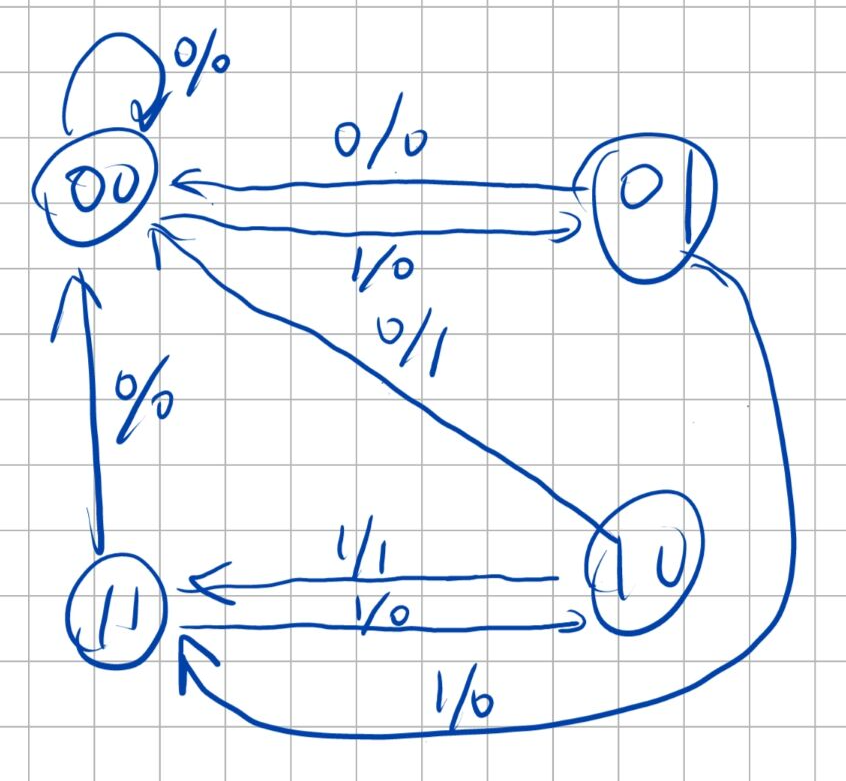 0/0
0/0
00
01
1/0
0/1
0/0
1/1
10
1/0
11
1/0